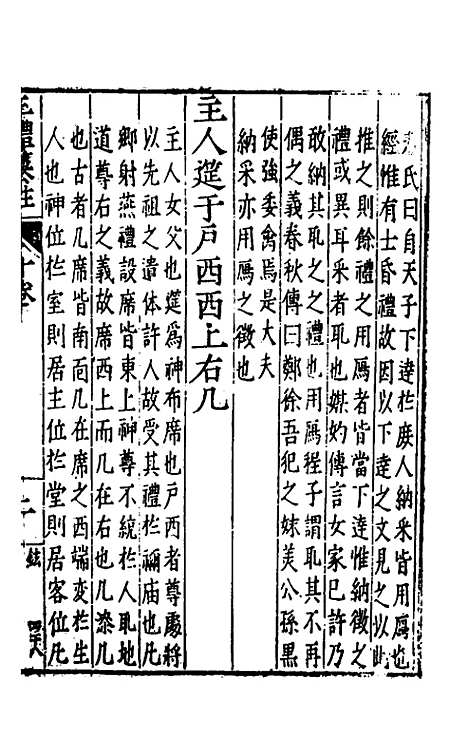 氏曰自天子下達於庶人納采皆用鴈也
經惟有士昏禮故因以下達之文見之以此
推之則餘禮之用鴈者皆當下達惟納徵之
禮或異耳采者取也媒妁傳言女家已許乃
敢納其取之之禮也用鴈程子謂取其不再
偶之義春秋傳曰鄭徐吾犯之妹美公孫黑
使強委禽焉是大夫
納采亦用鴈之徵也
主人筵于戶西西上右几
主人女父也筵為神布席也戶西者尊處將
以先祖之遺体許人故受其禮於禰庙也凡
鄉射燕禮設席皆東上神尊不統於人取地
道尊右之義故席西上而几在右也几漆几
也古者几席皆南面几在席之西端變於生
人也神位於室則居主位於堂則居客位凡
十卷